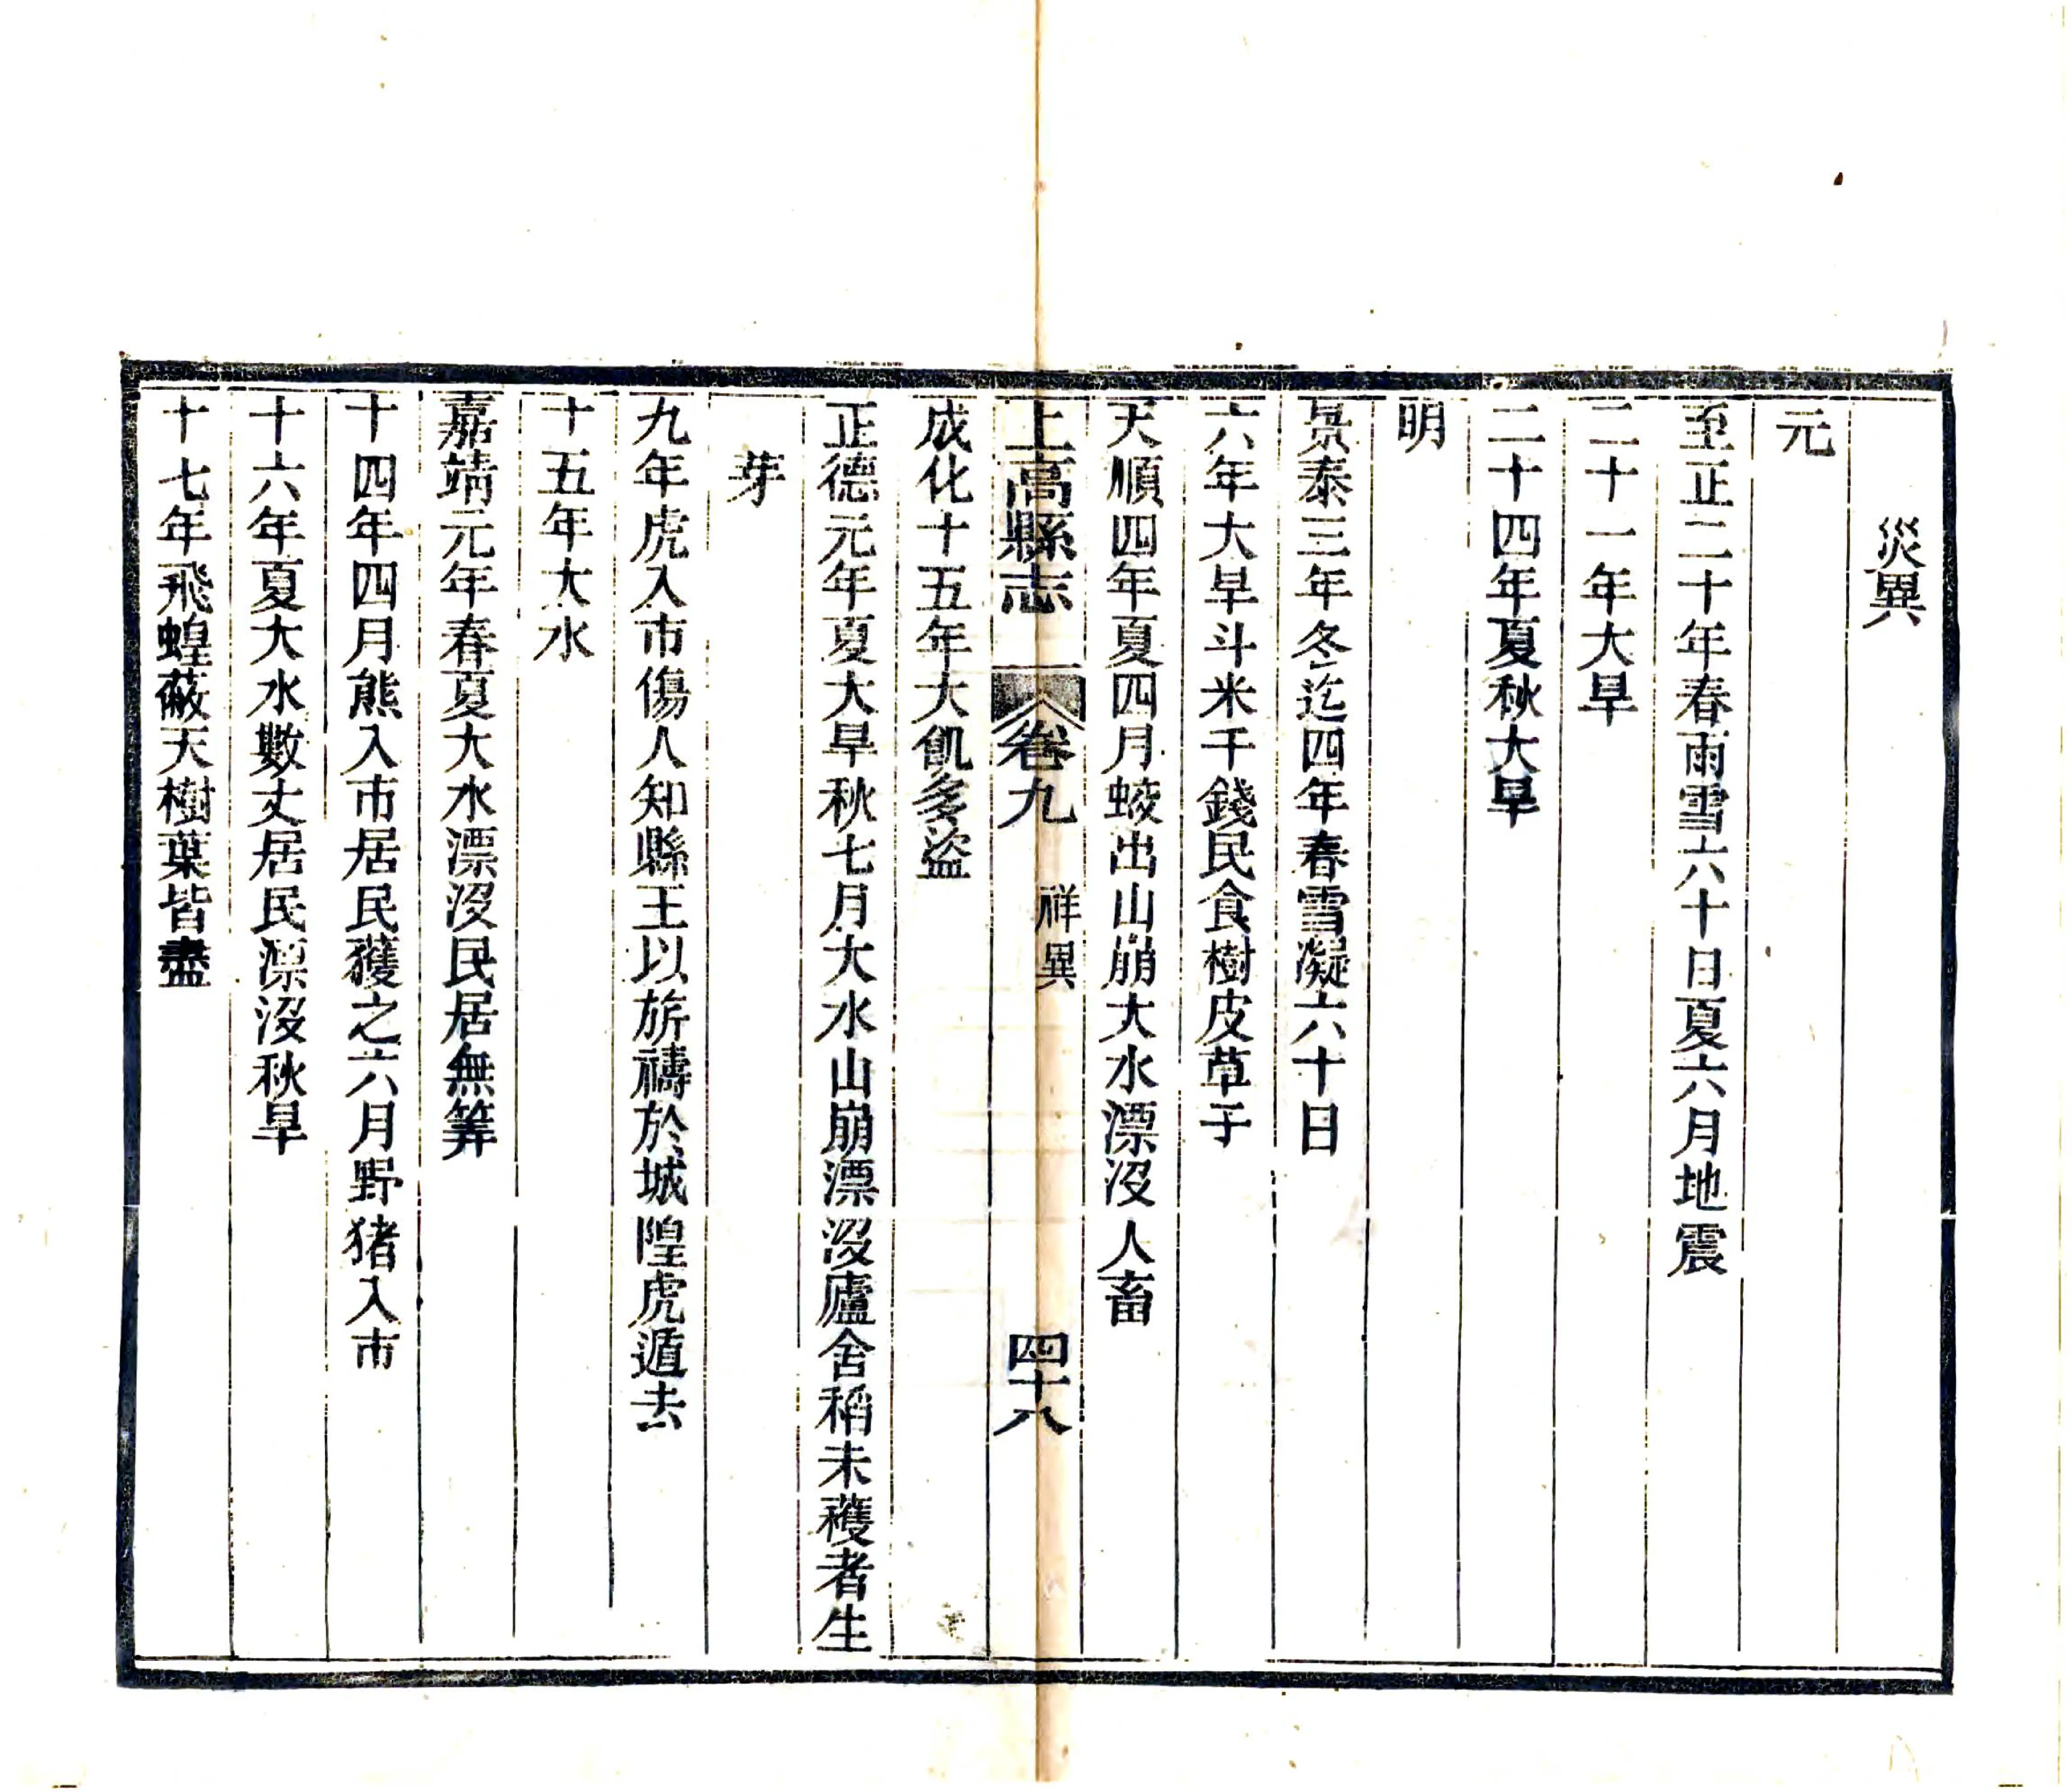 災異
元
至正二十年春雨雪六十日夏六月地震
二十一年大旱
二十四年夏秋大旱
明
景泰三年冬迄四年春雪凝六十日
六年大旱斗米千錢民食樹皮草子
天順四年夏四月蛟出山崩大水漂沒人畜
上高縣志 卷九 祥異 四十八
成化十五年大飢多盜
正德元年夏大旱秋七月大水山崩漂沒廬舍稻未穫者生
芽
九年虎入市傷人知縣王以旂禱於城隍虎遁去
十五年大水
嘉靖元年春夏大水漂沒民居無筭
十四年四月熊入市居民獲之六月野猪入市
十六年夏大水數丈居民漂沒秋旱
十七年飛蝗蔽天樹葉皆盡